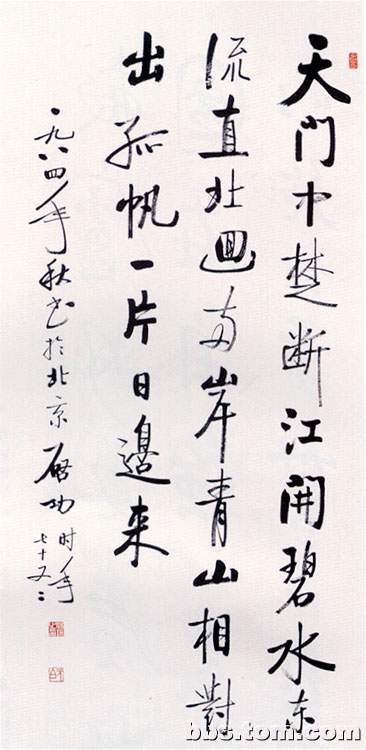 天門中楚断江開碧水东
流直北迴两岸青山相對
出孤帆一片日邊来
一九八四年秋书於北京启功时年
七十又二
bbs.tom.com